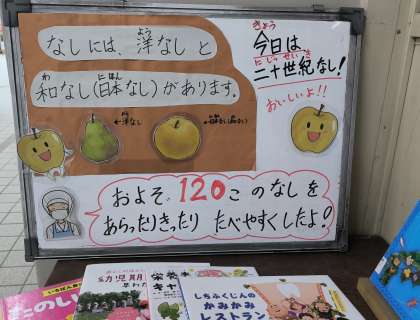 なしには、洋なしと
よう
和なし(日本なし)があります。
わ にほん
←洋なし
今日は、
きょう
二十世紀なし!
にじゅっせいき
おいしいよ!!
およそ120このなしを
あらったりきったり たべやすくしたよ!
しちふくじんの
かみかみ
レストラン